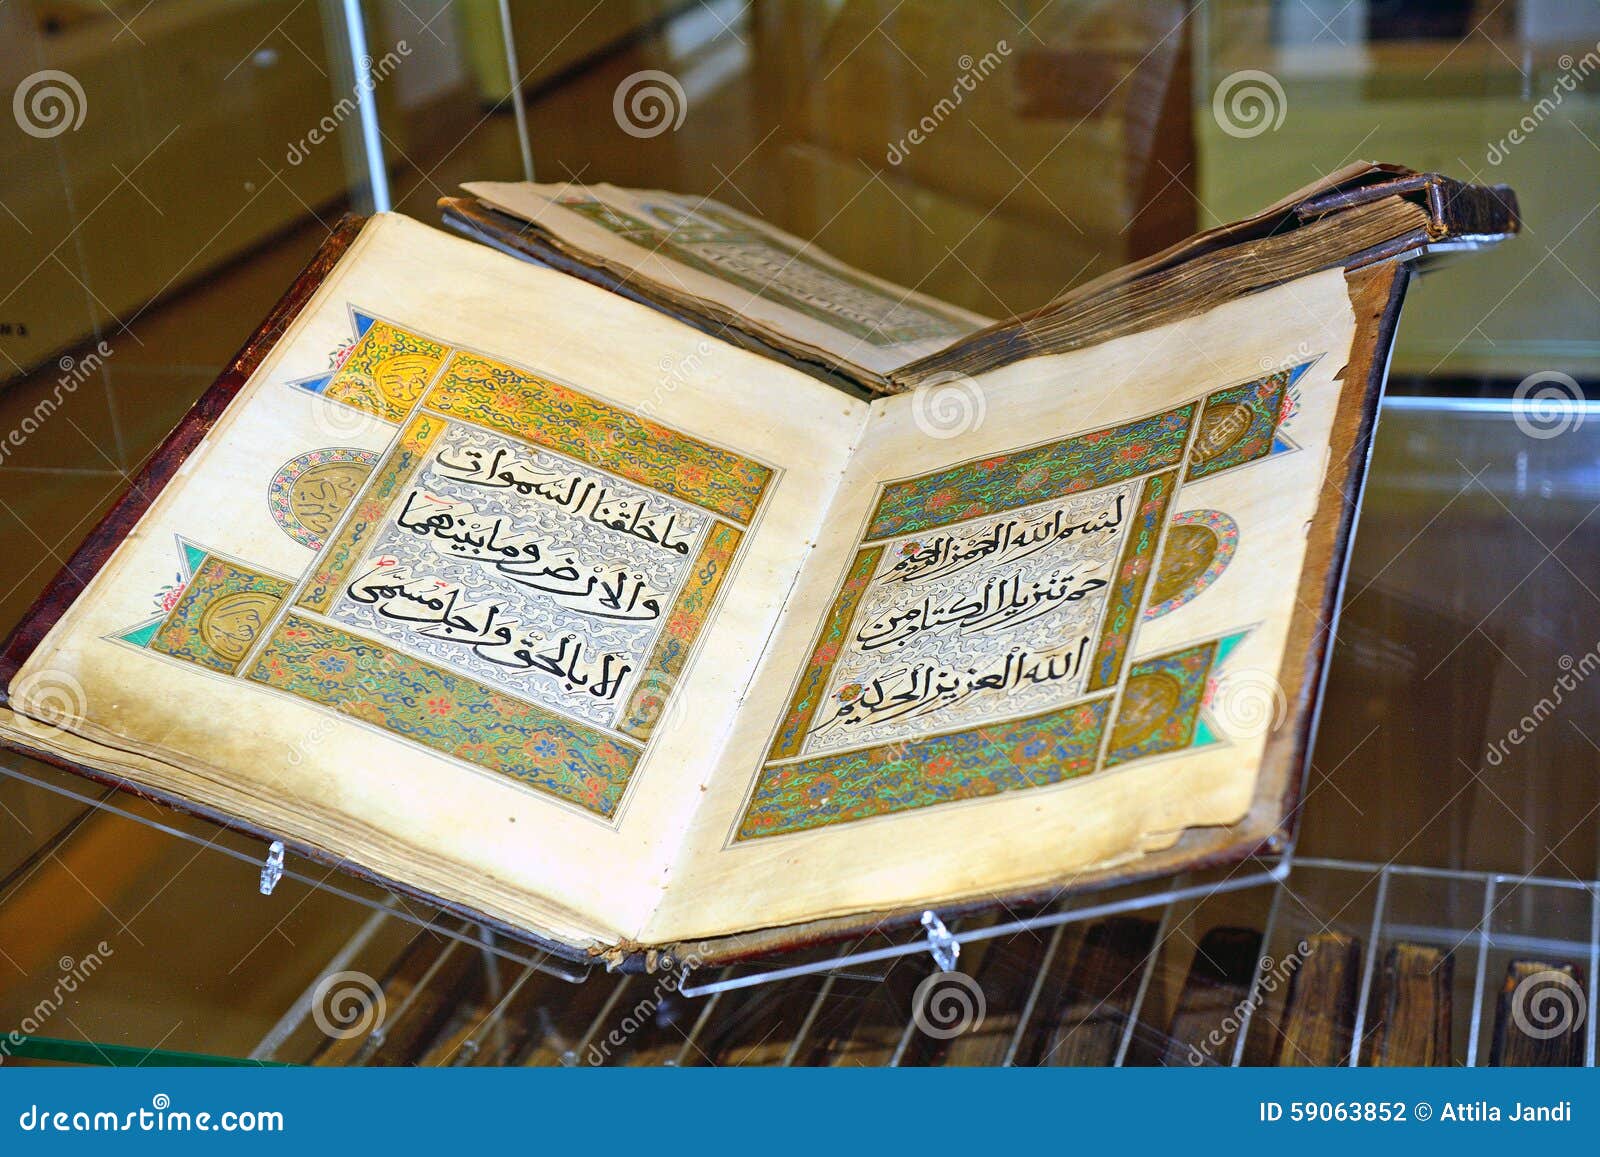 بسم الله الرحمن الرحيم
حم تنزيل الكتاب من
الله العزيز الحكيم
ما خلقنا السموات
والارض وما بينهما
الا بالحق واجل مسمى
dreamstime.com
ID 59063852 © Attila Jandi